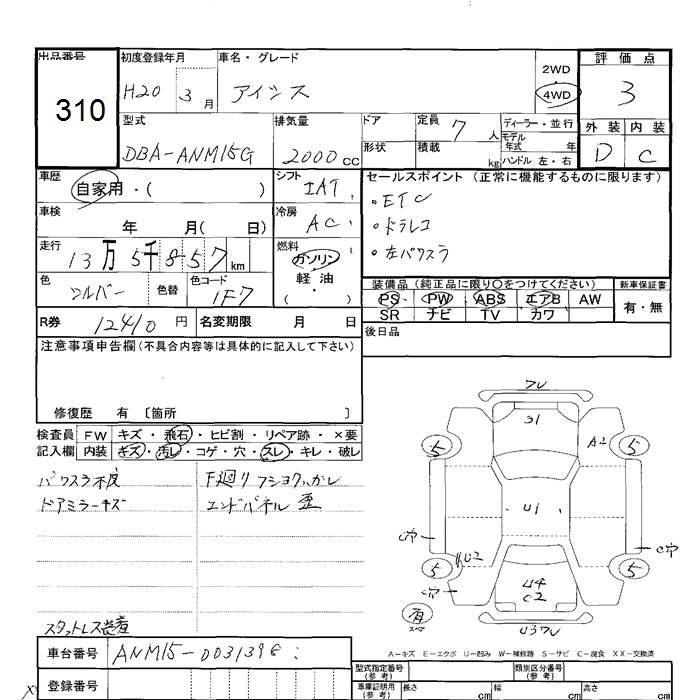 出品番号 初度登録年月 車名・グレード 2WD 評価点
310 H20 3月 アイシス 4WD 3
型式 排気量 ドア 定員 7人 ディーラー・並行 外装 内装
DBA-ANM15G 2000cc 形状 積載 kg モデル年式 年 D C
ハンドル 左・右
車歴 自家用・( ) シフト IAT セールスポイント (正常に機能するものに限ります)
車検 年 月( 日) 冷房 AC ・ETC
・ドラレコ
・左パワスラ
走行 13万5千857km 燃料 ガソリン・軽油・( )
色 シルバー 色替 色コード 1F7
装備品(純正品に限り○をつけてください) 新車保証書
PS PW ABS エアB AW 有・無
SR ナビ TV カワ
R券 12410円 名変期限 月 日 後日品
注意事項申告欄(不具合内容等は具体的に記入して下さい)
修復歴 有 〔箇所 〕
検査員 FW キズ・飛石・ヒビ割・リペア跡・×要
記入欄 内装 キズ・汚レ・コゲ・穴・スレ・キレ・破レ
パワスラ不良 F廻り
ドアミラーキズ エンドパネル 歪
スタットレス装着
フレ
31
A2
5 5
U1
C穴 C穴
U2
5 5
C穴 U4
C2
有
スペア
U3フレ
A-キズ E-エクボ U-凹み W-補修跡 S-サビ C-腐食 XX-交換済
車台番号 ANM15-0031398
登録番号
型式指定番号(参考) 類別区分番号(参考)
車庫証明用(参考) 長さ cm 幅 cm 高さ cm